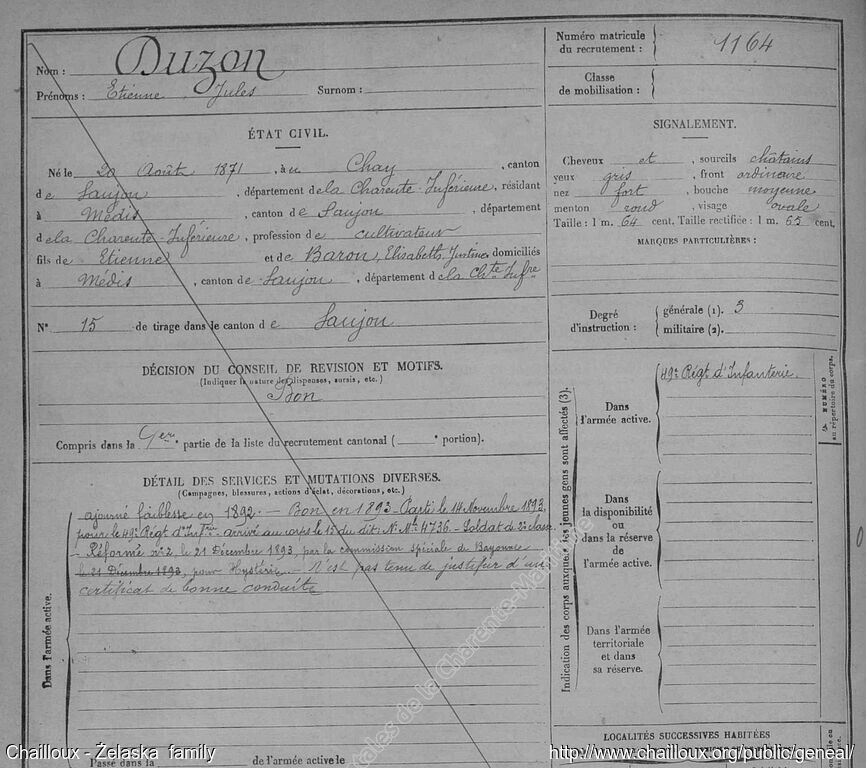 Nom : Duzon
Prénoms : Etienne, Jules Surnom :
Numéro matricule du recrutement : 1164
Classe de mobilisation :
ÉTAT CIVIL.
Né le 20 Août 1871, à Chay, canton
de Saujon, département de la Charente-Inférieure, résidant
à Médis, canton de Saujon, département
de la Charente-Inférieure, profession de cultivateur
fils de Etienne et de Baron, Elisabeth, Justine, domiciliés
à Médis, canton de Saujon, département de la Chte Infre
N° 15 de tirage dans le canton de Saujon
SIGNALEMENT.
Cheveux et, sourcils châtains
yeux gris, front ordinaire
nez fort, bouche moyenne
menton rond, visage ovale
Taille : 1 m. 64 cent. Taille rectifiée : 1 m. 65 cent.
MARQUES PARTICULIÈRES :
Degré d'instruction : générale (1). 3
militaire (2).
DÉCISION DU CONSEIL DE REVISION ET MOTIFS.
(Indiquer la nature des dispenses, sursis, etc.)
Bon
Compris dans la 1ere partie de la liste du recrutement cantonal ( ° portion).
DÉTAIL DES SERVICES ET MUTATIONS DIVERSES.
(Campagnes, blessures, actions d'éclat, décorations, etc.)
Dans l'armée active.
ajourné faiblesse en 1892. - Bon en 1893 - Parti le 14 Novembre 1893,
pour le 49e Régt d'Infrie arrivé au corps le 15 du dit; N° Mle 4736. - Soldat de 2e classe.
- Réformé n°2 le 21 Décembre 1893, par la commission spéciale de Bayonne
le 21 Décembre 1893, pour Hystérie. - N'est pas tenu de justifier d'un
certificat de bonne conduite
Passé dans la de l'armée active le
Indication des corps auxquels les jeunes gens sont affectés (3).
Dans l'armée active.
49e Régt d'Infanterie.
NUMÉRO
au répertoire du corps.
Dans la disponibilité ou dans la réserve de l'armée active.
Dans l'armée territoriale et dans sa réserve.
LOCALITÉS SUCCESSIVES HABITÉES
de la Charente-Maritime
Chailloux - Želaska family
http://www.chailloux.org/public/geneal/